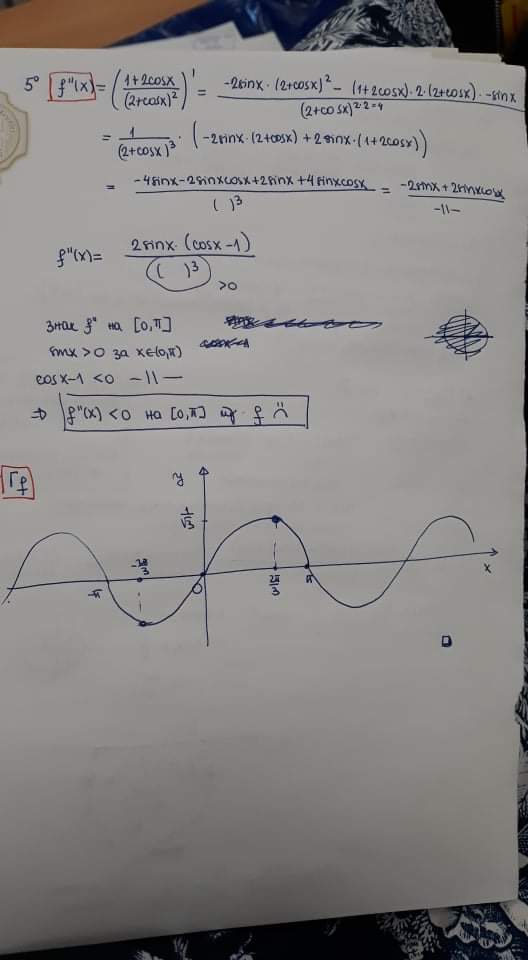 5° f''(x) = ( (1+2cosx) / (2+cosx)² )' = ( -2sinx · (2+cosx)² - (1+2cosx)·2·(2+cosx)·-sinx ) / (2+cosx)^(2·2=4)
= 1/(2+cosx)³ · ( -2sinx·(2+cosx) + 2sinx·(1+2cosx) )
= ( -4sinx-2sinxcosx+2sinx+4sinxcosx ) / ( )³ = ( -2sinx+2sinxcosx ) / -11-
f''(x) = ( 2sinx·(cosx-1) ) / ( )³ >0
знак f'' на [0,π]
sinx>0 за x∈(0,π)
cosx-1 <0 -11-
⇒ f''(x) <0 на [0,π] f ∩
Γf
y
1/√3
-2π/3
-π
O
2π/3
π
x